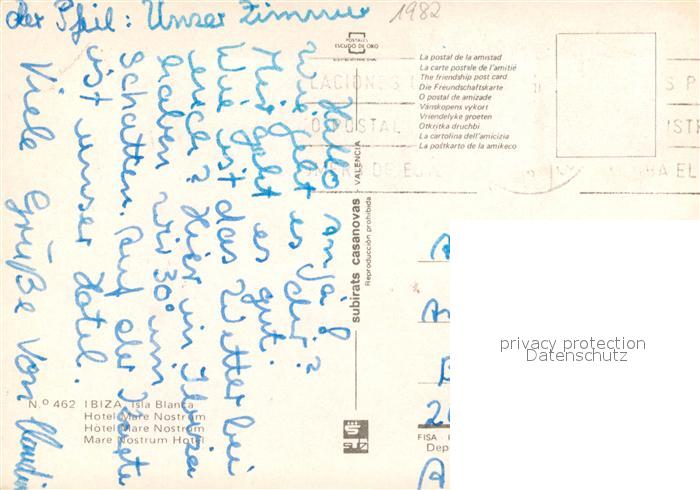 der Pfeil: Unser Zimmer
1982
Hallo Anja!
wie geht es dir?
Mir geht es gut.
Wie ist das Wetter bei
euch? Hier in Ibiza
haben wir 30° im
Schatten. Auf der Karte
ist unser Hotel.
Viele Grüße von
POSTALES
ESCUDO DE ORO
La postal de la amistad
La carte postale de l'amitié
The friendship post card
Die Freundschaftskarte
O postal de amizade
Vänskapens vykort
Vriendelyke groeten
Otkritka druchbi
La cartolina dell'amicizia
La poŝtkarto de la amikeco
LACIONES
O POSTAL
subirats casanovas - VALENCIA
Reproducción prohibida
N.º 462 IBIZA. Isla Blanca
Hotel Mare Nostrum
Hôtel Mare Nostrum
Mare Nostrum Hotel
FISA
Dep
privacy protection
Datenschutz